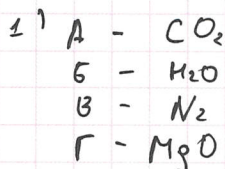 1) А - CO2
Б - H2O
В - N2
Г - MgO